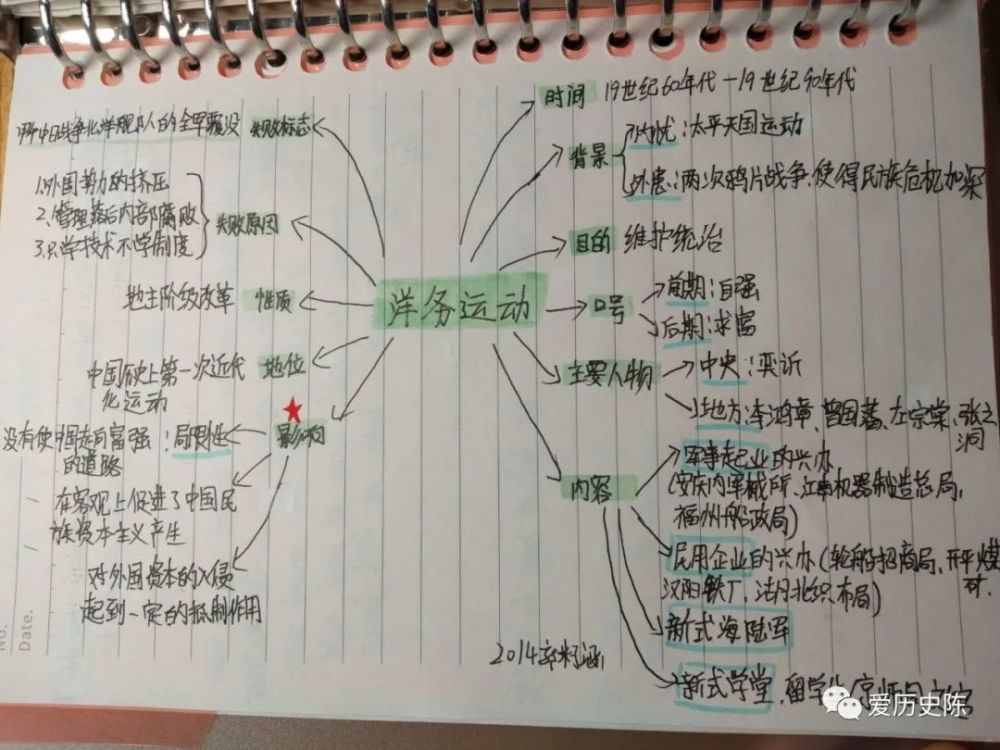 洋务运动
时间 19世纪60年代-19世纪90年代
背景
内忧:太平天国运动
外患:两次鸦片战争,使得民族危机加深
目的 维护统治
口号
前期:自强
后期:求富
主要人物
中央:奕訢
地方:李鸿章、曾国藩、左宗棠、张之
洞
内容
军事起业的兴办
(安庆内军械所、江南机器制造总局,
福州船政局)
民用企业的兴办(轮船招商局、开平煤
矿.
汉阳铁厂、湖北织布局)
新式海陆军
新式学堂、留学生
甲午中日战争北洋舰队的全军覆没 失败标志
失败原因
1.外国势力的挤压
2.管理落后内部腐败
3.只学技术不学制度
地主阶级改革 性质
中国历史上第一次近代 地位
化运动
影响
没有使中国走向富强:局限性
的道路
在客观上促进了中国民
族资本主义产生
对外国资本的入侵
起到一定的抵制作用
2014
No.
Date.
爱历史陈